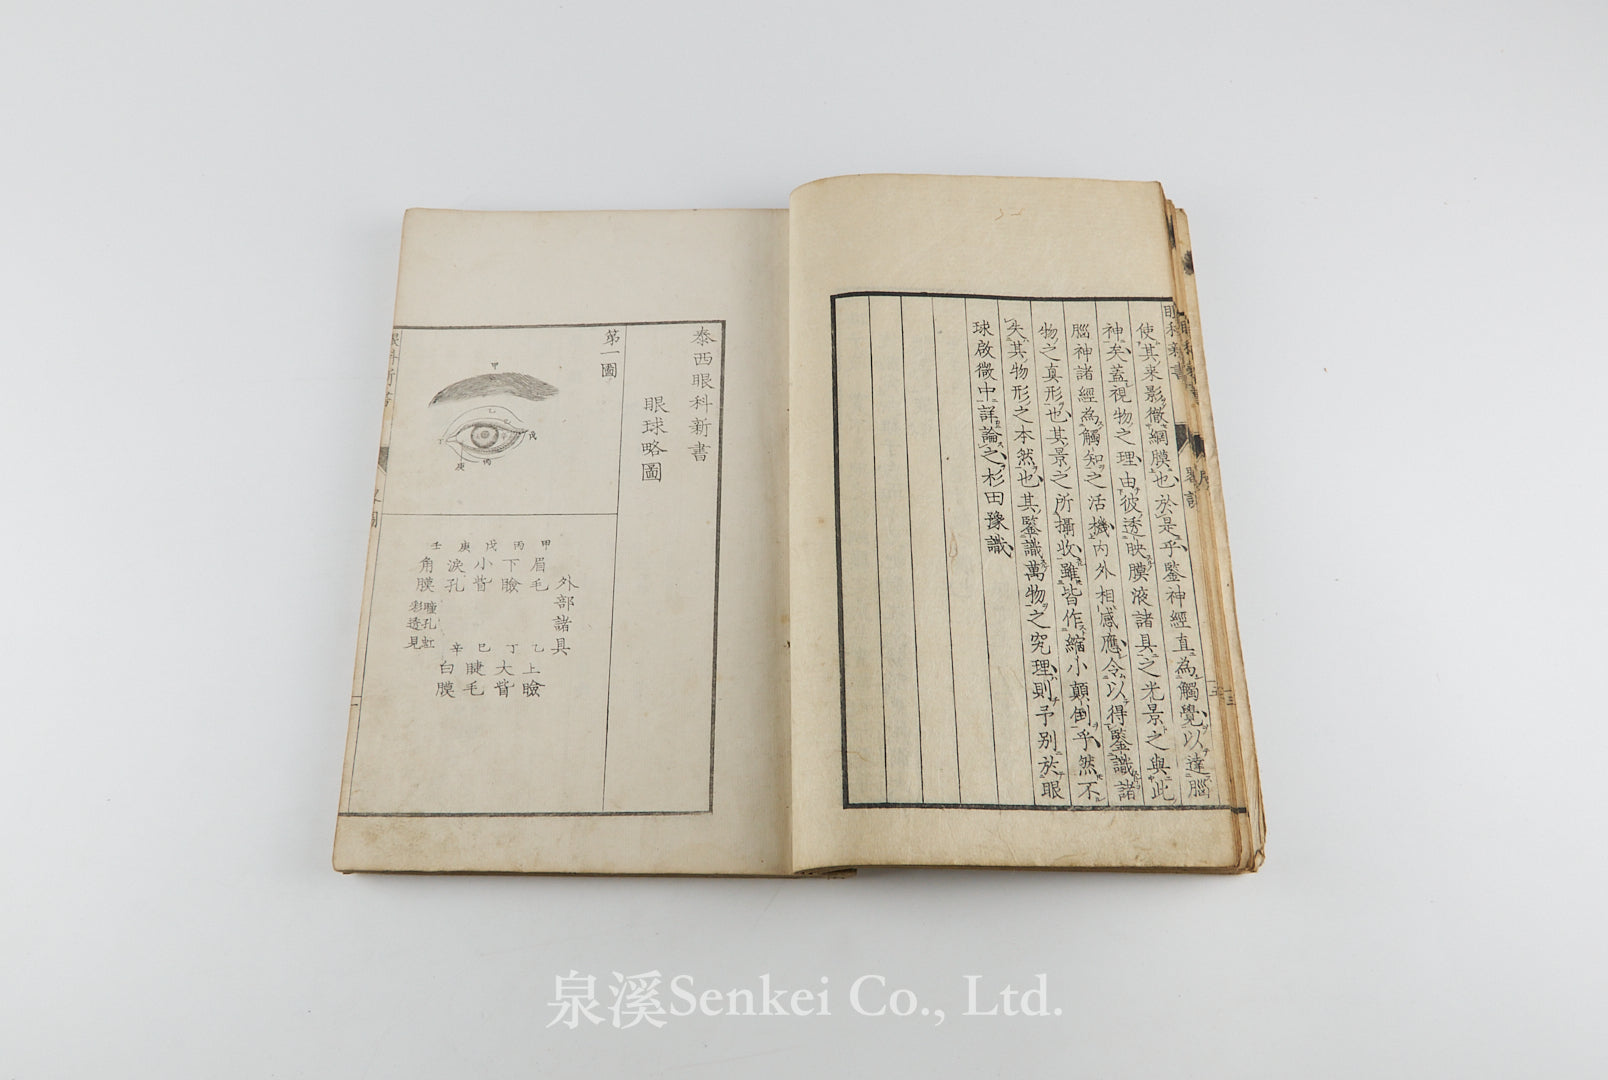 使其来影徹網膜也於是乎鑒神經直為觸覺以達腦
神矣蓋視物之理由彼透映膜液諸具之光景之與此
腦神諸經為觸知之活機内外相感應令以得鑒識諸
物之真形也其景之所攝收雖皆作縮小顛倒乎然不
失其物形之本然也其鑒識萬物之究理則予別於眼
球啟微中詳論之杉田豫識
泰西眼科新書
眼球略圖
第一圖
甲
乙
丁
戊
丙
庚
外部諸具
甲 眉毛
乙 上瞼
丙 下瞼
丁 大眥
戊 小眥
巳 睫毛
庚 淚孔
辛 白膜
壬 角膜
瞳孔虹
彩透見
泉溪Senkei Co., Ltd.